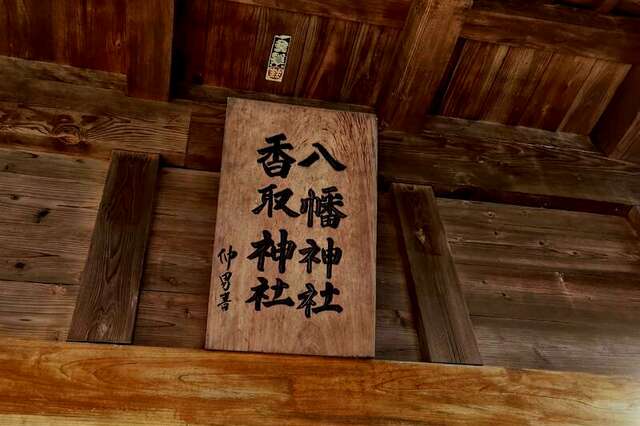 八幡神社
香取神社
仲男書